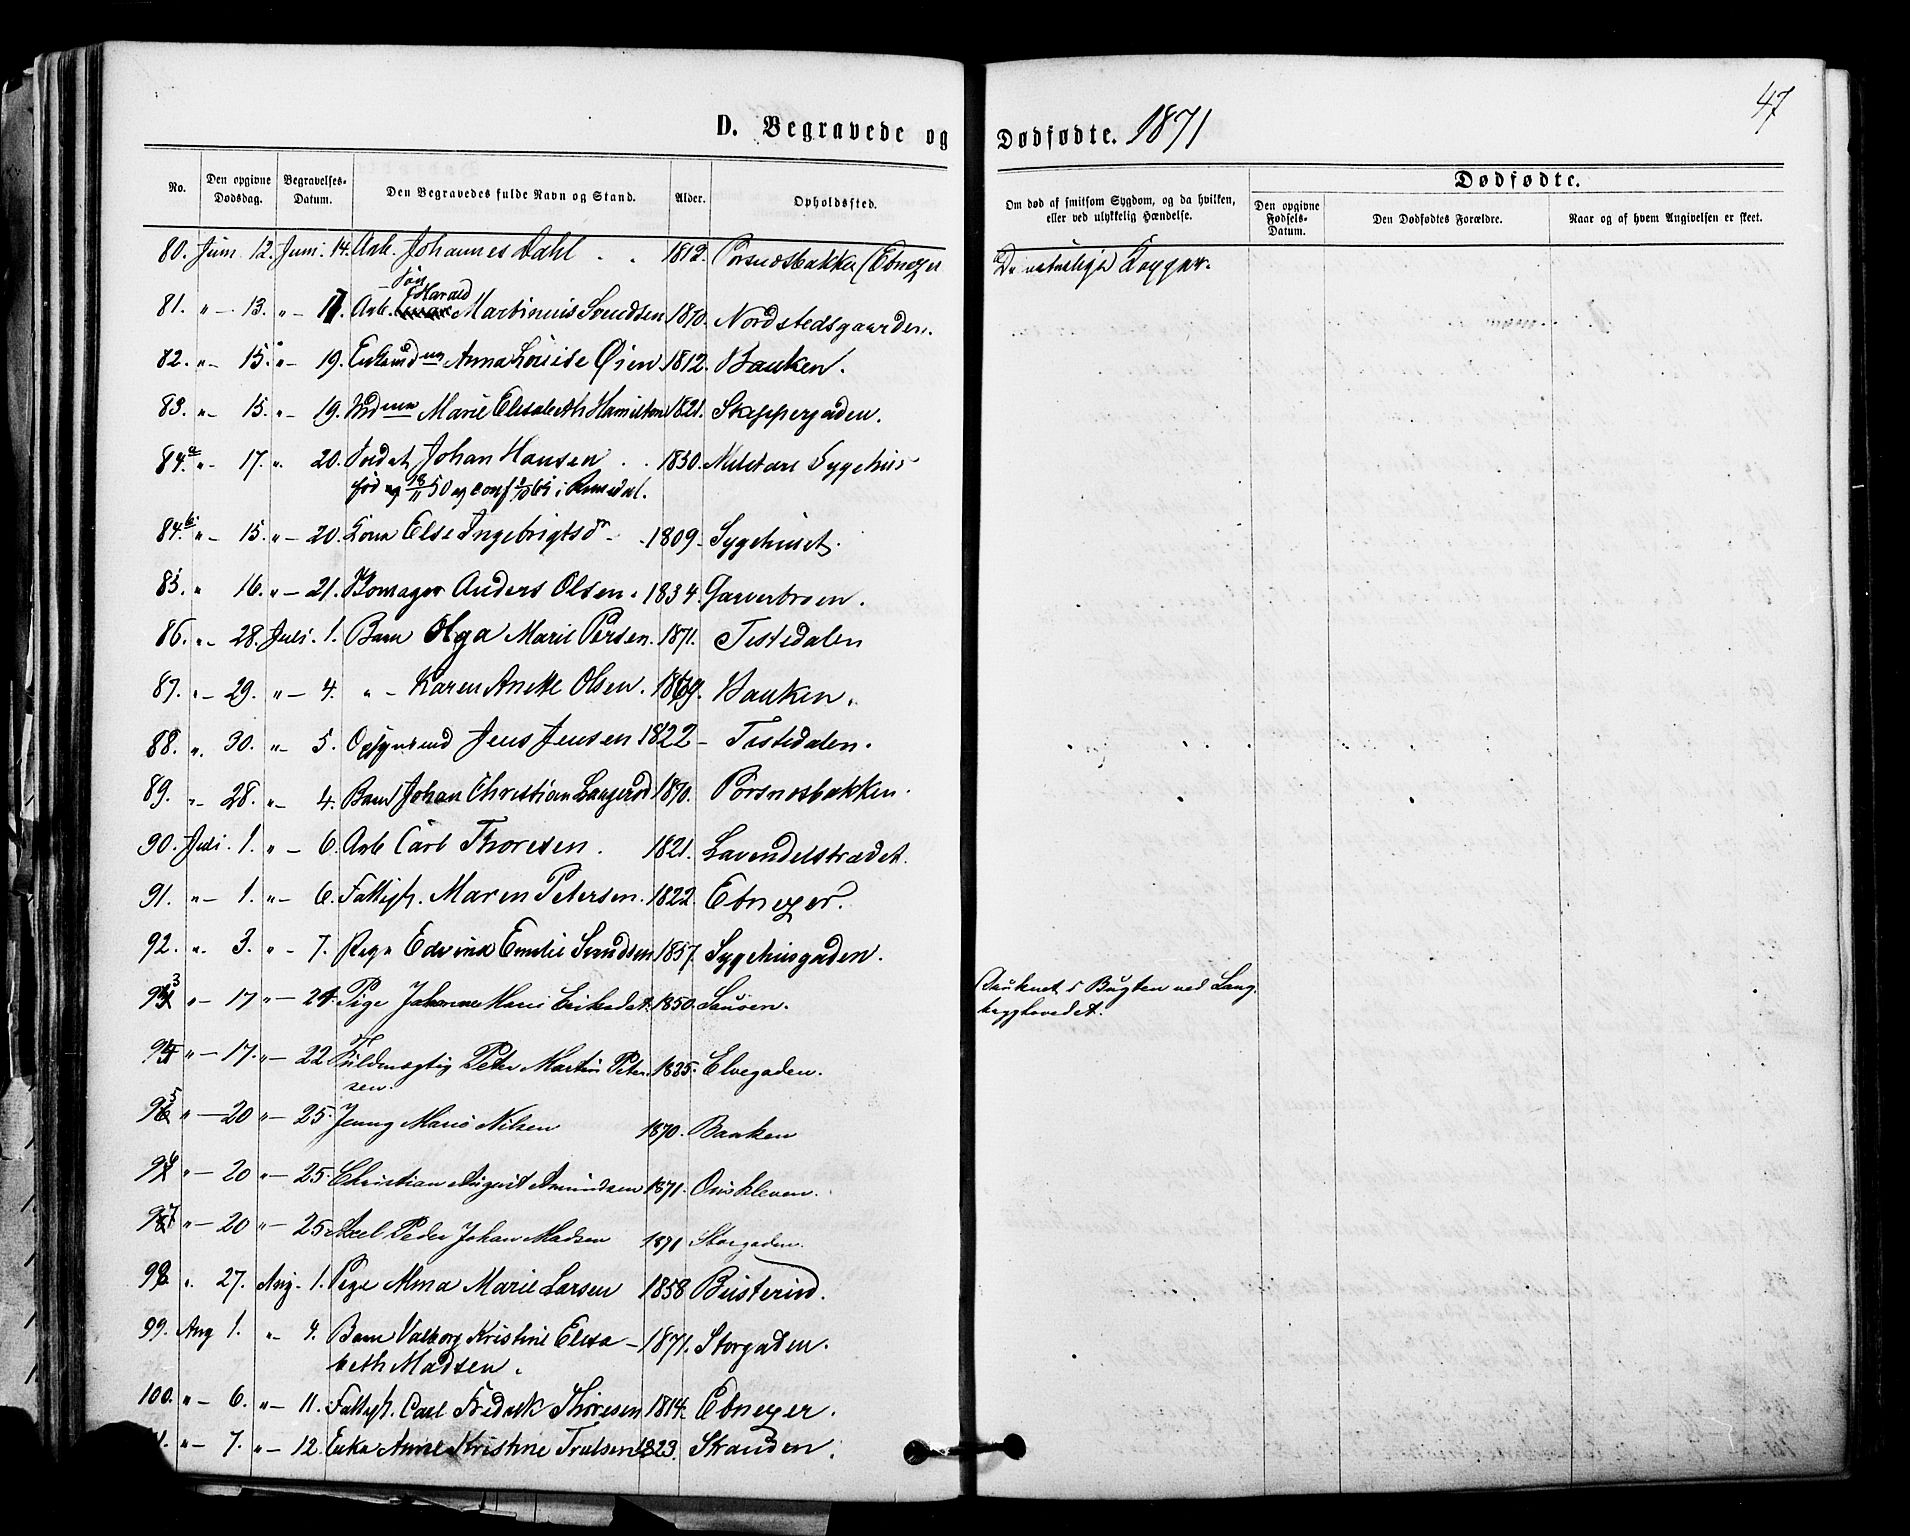 47
D. Begravede og Dødfødte. 1871
No. Den opgivne Dødsdag. Begravelses-Datum. Den Begravedes fulde Navn og Stand. Alder. Opholdssted. Om død af smitsom Sygdom, og da hvilken, eller ved ulykkelig Hændelse. Dødfødte.
Den opgivne Fødsels-Datum. Den Dødfødtes Forældre. Naar og af hvem Angivelsen er skeet.
80. Juni 12. Juni. 14. Arb. Johannes Dahl 1812. Porsnæsbakke (Ebnezer De naturlige Kopper.
Søn Harald
81. " 13. " 17. Arb. Martinius Svendsen 1870. Nordstedsgaarden.
82. " 15. " 19. Anna Louise Øien 1812. Banken.
83. " 15. " 19. Marie Elisabeth Hamilton 1821. Skippergaden.
84.a " 17. " 20. Soldat Johan Hansen 1850. Militære Sygehus
fød 50 og conf 65 i
84.b " 15. " 20. Kona Else Ingebrigtsdr 1809. Sygehuset.
85. " 16. " 21. Anders Olsen. 1834. Garverbroen.
86. " 28. Juli. 1. Barn Olga Marie Persen. 1871. Tistedalen
87. " 29. " 4. " Karen Anette Olsen. 1869. Banken.
88. " 30. " 5. Opsynsmd Jens Jensen 1822 Tistedalen.
89. " 28. " 4. Barn Johan Christian Langerød 1870. Porsnæsbakken.
90. Juli. 1. " 6. Arb Carl Thoresen. 1821. Lavendelstrædet.
91. " 1. " 6. Fattigh. Maren Petersen. 1822. Ebnezer.
92. " 3. " 7. Pige Edvina Emilie Svendsen 1857. Sygehusgaden.
93 " 17 " 24. Pige Johanne Marie 1850. Sauøen. Druknet i Bugten ved Lang-
94 " 17. " 22. Fuldmægtig Peter Martin Peter- 1835. Elvegaden.
sen.
95 " 20 " 25. Jenny Marie Nilsen 1870. Banken
96 " 20 " 25. Christian August Amundsen 1871. Ouskleven.
97 " 20 " 25. Axel Peder Johan Madsen 1871 Storgaden.
98 " 27. Aug. 1. Pige Alma Marie Larsen 1858 Busterud.
99. Aug 1. " 4. Barn Valborg Kristine Elisa- 1871. Storgaden.
beth Madsen.
100. " 6. " 11. Fattigh. Carl Fredrik Thoresen 1814. Ebnezer.
" 7. " 12. Enke Anne Kristine Trulsen 1823. Stranden.